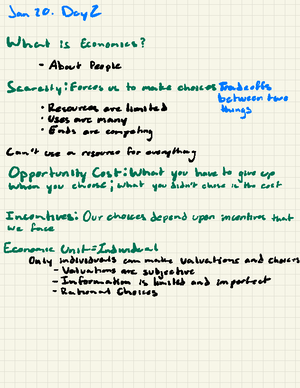 Jan 20. Day 2
What is Economics?
- About People
Scarcity: Forces us to make choices Tradeoffs
between two
things
• Resources are limited
• Uses are many
• Ends are competing
Can't use a resource for everything
Opportunity Cost: What you have to give up
when you choose; what you didn't chose is the cost
Incentives: Our choices depend upon incentives that
we face
Economic Unit = Individual
Only individuals can make valuations and choices
- Valuations are subjective
- Information is limited and imperfect
- Rational Choices